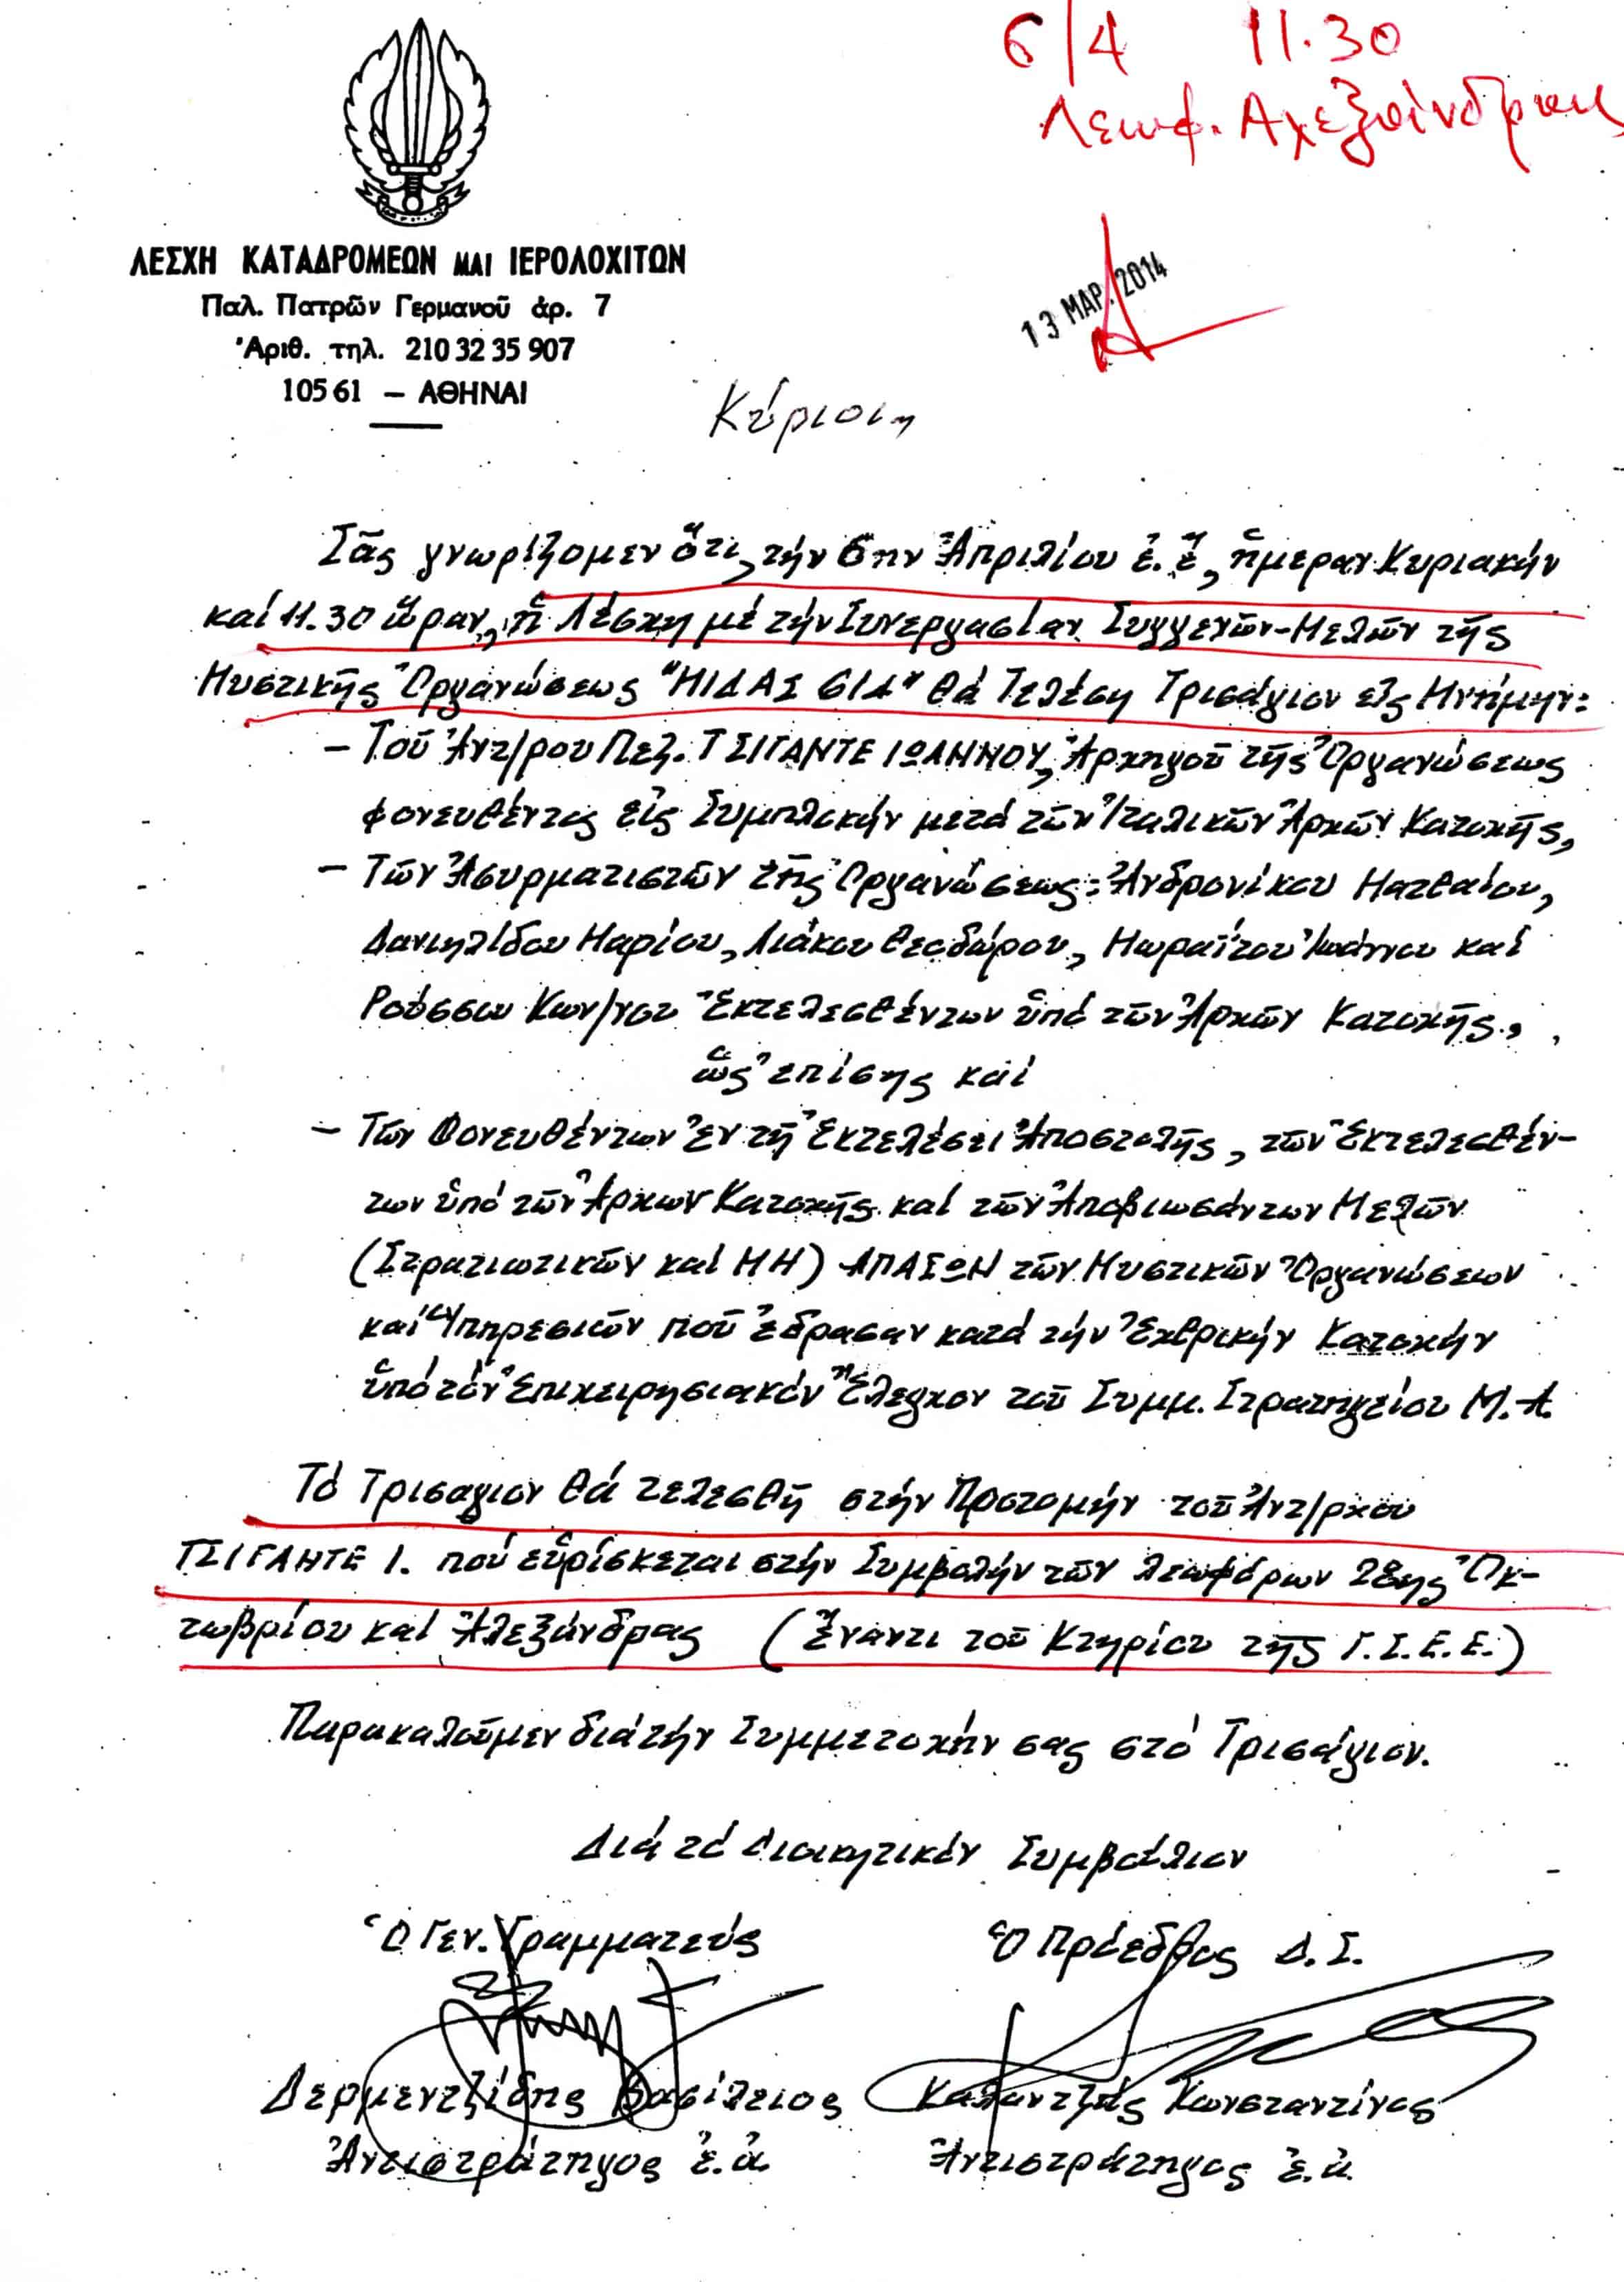 6/4 11.30
Λεωφ. Αλεξάνδρας
ΛΕΣΧΗ ΚΑΤΑΔΡΟΜΕΩΝ ΚΑΙ ΙΕΡΟΛΟΧΙΤΩΝ
Παλ. Πατρῶν Γερμανοῦ ἀρ. 7
Ἀριθ. τηλ. 210 32 35 907
105 61 – ΑΘΗΝΑΙ
13 ΜΑΡ. 2014
Κύριοι,
Σᾶς γνωρίζομεν ὅτι, τήν 6ην Ἀπριλίου ἐ.ἔ, ἡμεραν Κυριακήν
καί 11.30 ὥραν, ἡ Λέσχη μέ τήν Συνεργασίαν Συγγενῶν-Μελῶν τῆς
Μυστικῆς Ὀργανώσεως "ΜΙΔΑΣ 614" θά Τελέση Τρισάγιον εἰς Μνήμην:
– Τοῦ Ἀντ/ρχου Πεζ. ΤΣΙΓΑΝΤΕ ΙΩΑΝΝΟΥ, Ἀρχηγοῦ τῆς Ὀργανώσεως
φονευθέντος εἰς Συμπλοκήν μετά τῶν Ἰταλικῶν Ἀρχῶν Κατοχῆς,
– Τῶν Ἀσυρματιστῶν τῆς Ὀργανώσεως: Ἀνδρονίκου Ματθαίου,
Δανιηλίδου Μαρίου, Λιάκου Θεοδώρου, Μωραΐτου Ἰωάννου καί
Ρούσσου Κων/νου Ἐκτελεσθέντων ὑπό τῶν Ἀρχῶν Κατοχῆς,
ὡς ἐπίσης καί
– Τῶν Φονευθέντων Ἐν τῇ Ἐκτελέσει Ἀποστολῆς, τῶν Ἐκτελεσθέν-
των ὑπό τῶν Ἀρχων Κατοχῆς καί τῶν Ἀποβιωσάντων Μελῶν
(Στρατιωτικῶν καί ΜΗ) ΑΠΑΣΩΝ τῶν Μυστικῶν Ὀργανώσεων
καί Ὑπηρεσιῶν πού ἔδρασαν κατά τήν Ἐχθρικήν Κατοχήν
ὑπό τόν Ἐπιχειρησιακόν Ἔλεγχον τοῦ Συμμ. Στρατηγείου Μ.Α.
Τό Τρισαγιον θά τελεσθῆ στήν Προτομήν τοῦ Ἀντ/ρχου
ΤΣΙΓΑΝΤΕ Ι. πού εὑρίσκεται στήν Συμβολήν τῶν λεωφόρων 28ης Ὀκ-
τωβρίου καί Ἀλεξάνδρας (Ἔναντι τοῦ Κτηρίου τῆς Γ.Σ.Ε.Ε.)
Παρακαλοῦμεν διά τήν Συμμετοχήν σας στό Τρισάγιον.
Διά τό Διοικητικόν Συμβούλιον
Ὁ Γεν. Γραμματεύς Ὁ Πρόεδρος Δ.Σ.
Δερμεντζίδης Βασίλειος Καλαντζής Κωνσταντίνος
Ἀντιστράτηγος ἐ.ἀ. Ἀντιστράτηγος ἐ.ἀ.